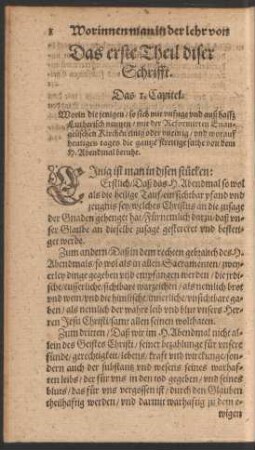 8 Worinnen man in der lehr von
Das erste Theil diser
Schrifft.
Das 1. Capitel.
Worin die jenigen / so sich mit vnfuge vnd auß haß
Lutherisch nennen / mit der Reformirten Euan-
gelischen Kirchen einig oder vneinig / vnd worauf
heutiges tages die gantze streitige sache von dem
H. Abendmal beruhe.
EInig ist man in disen stücken:
Erstlich / Daß das H. Abendmal so wol
als die heilige Tauf ein sichtbar pfand vnd
zeugnis sey, welches Christus an die zusage
der Gnaden gehenget hat / Fürnemlich darzu / daß vn-
ser Glaube an dieselbe zusage gestercket vnd besteti-
get werde.
Zum andern / Daß in dem rechten gebrauch des H.
Abendmals / so wol als in allen Sacramenten / zwey-
erley dinge gegeben vnd empfangen werden / die irdi-
sche / eusserliche / sichtbare warzeichen / als nemlich brot
vnd wein / vnd die himlische / innerliche / vnsichtbare ga-
ben / als nemlich der wahre leib vnd blut vnsers Her-
ren Jesu Christi / samt allen seinen wolthaten.
Zum dritten / Daß wir im H. Abendmal nicht al-
lein des Geistes Christi / seiner bezahlunge für vnsere
sünde / gerechtigkeit / lebens / kraft vnd wirckunge / son-
dern auch der substantz vnd wesens seines warhaf-
ten leibs / der für vns in den tod gegeben / vnd seines
bluts / das für vns vergossen ist / durch den Glauben
theilhaftig werden / vnd darmit warhaftig zu dem e-
wigen